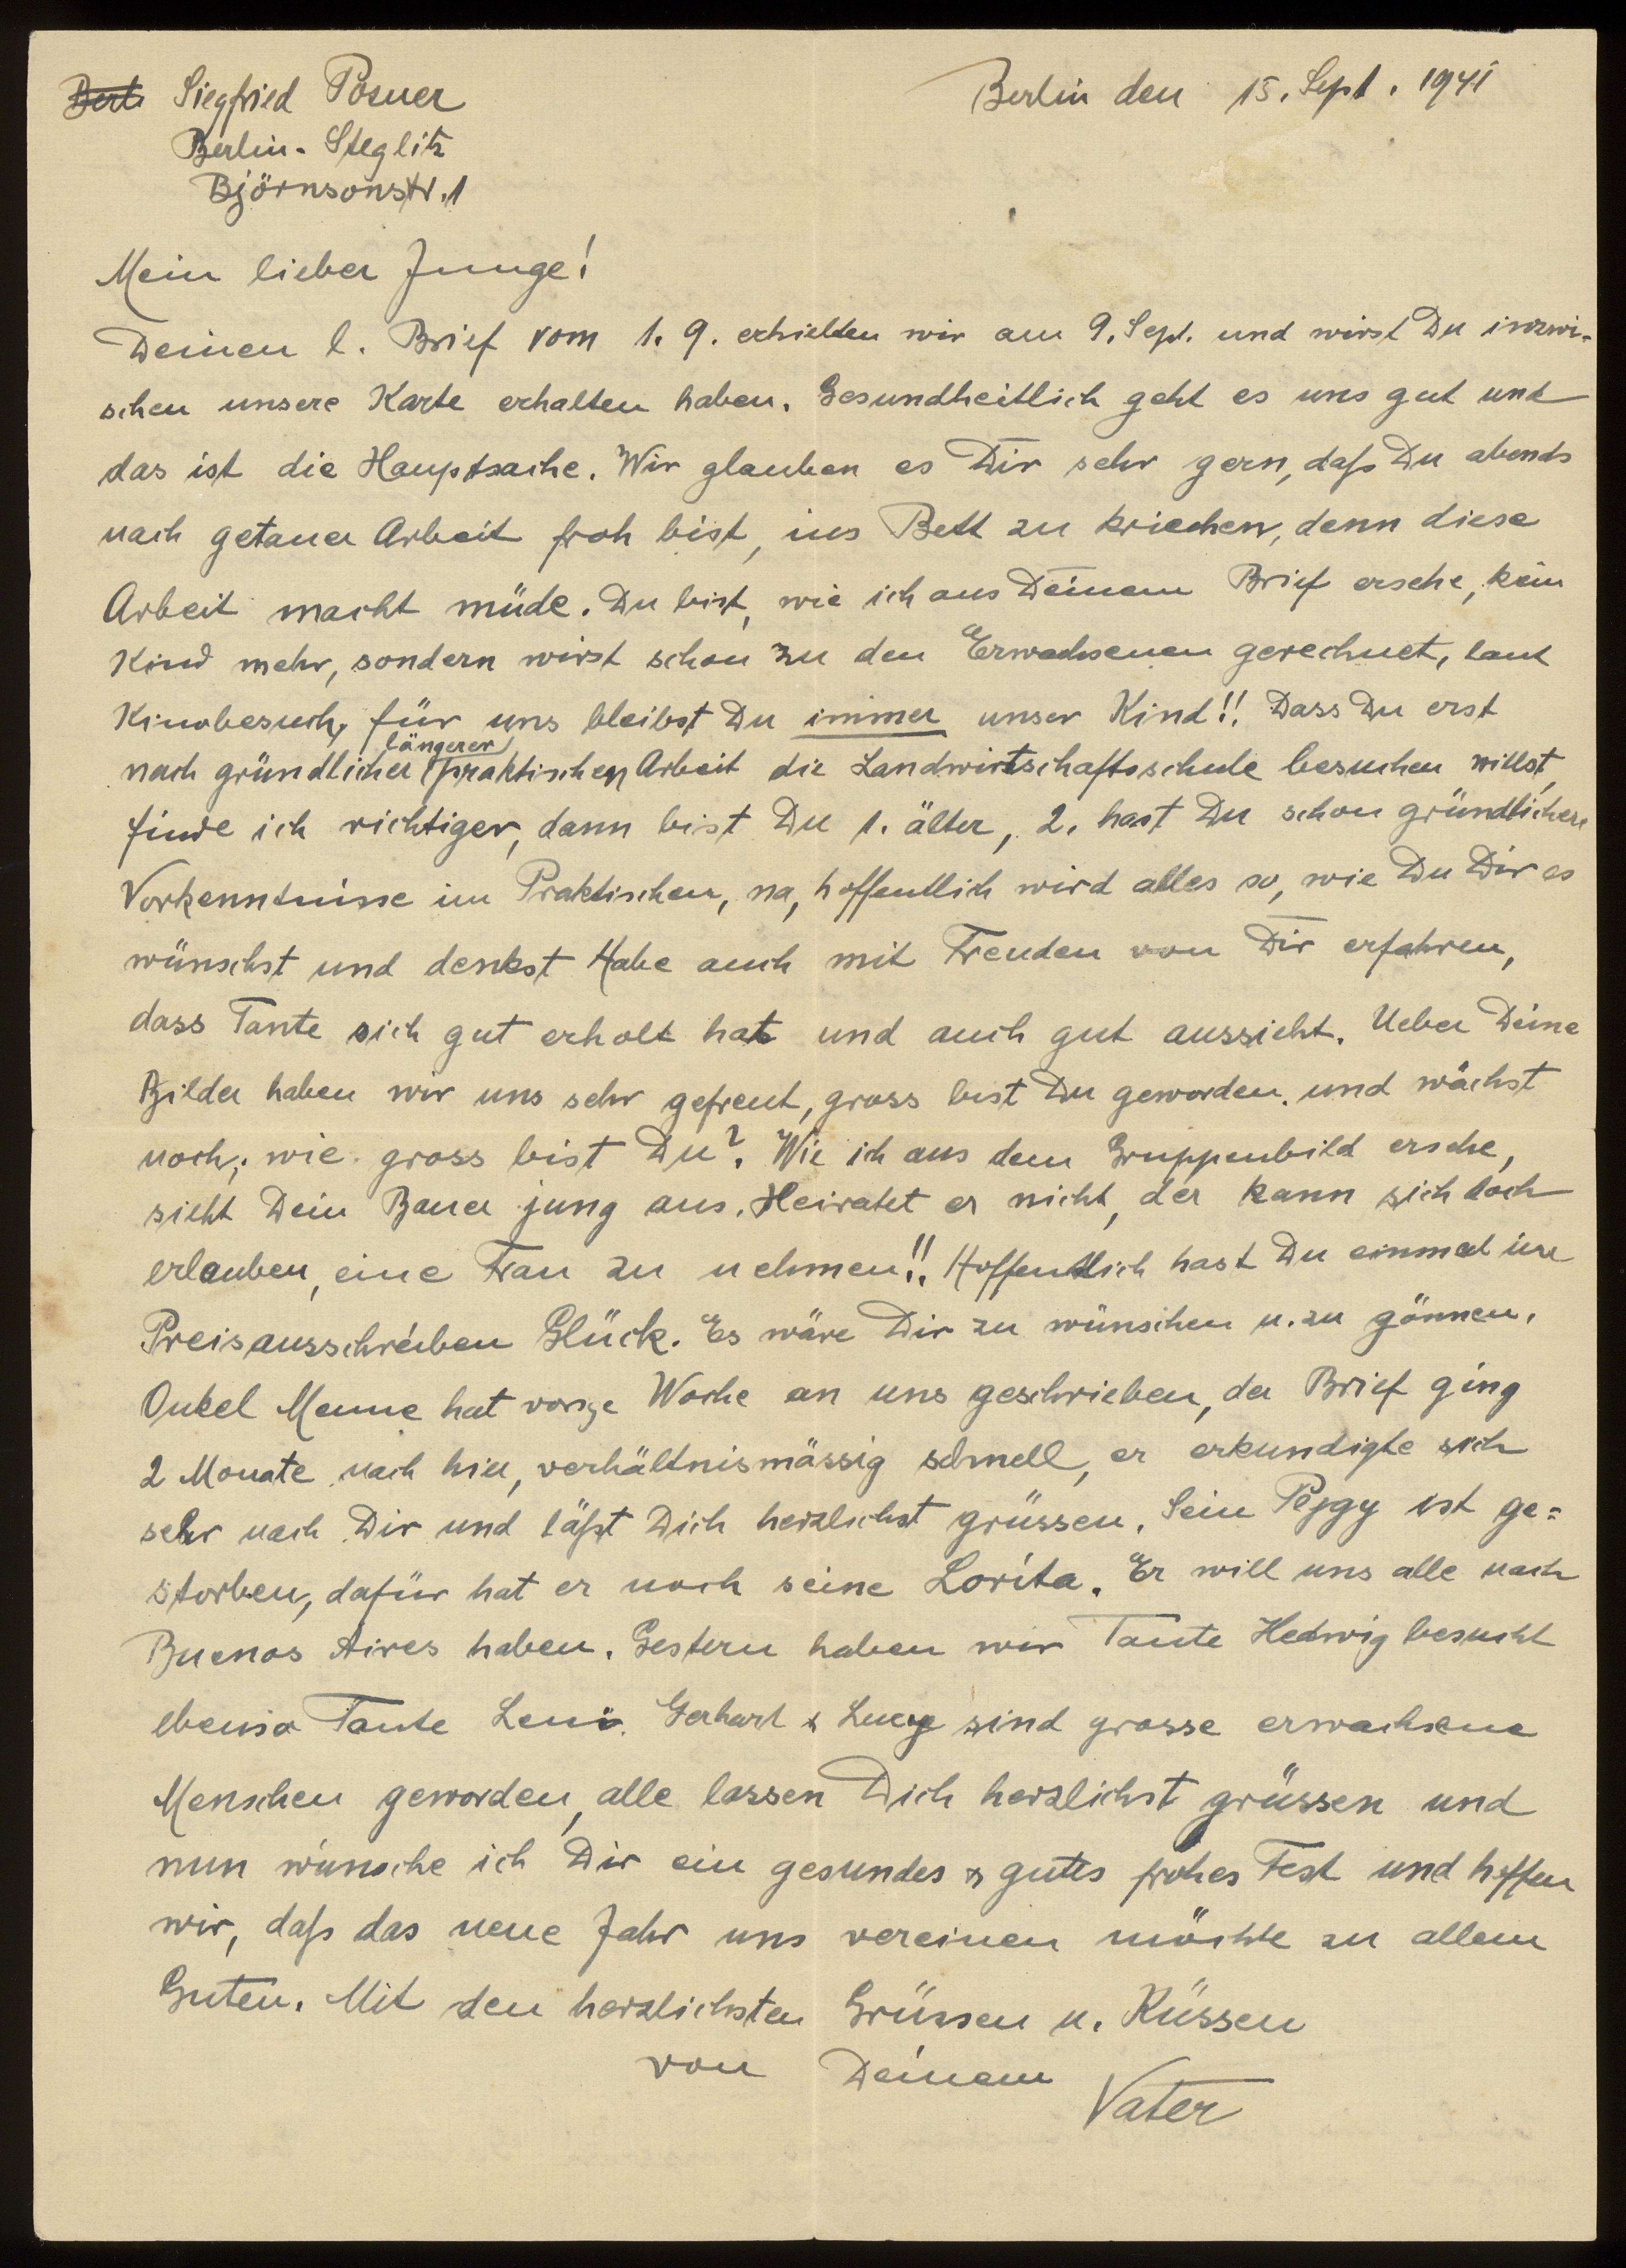 Siegfried Posner
Berlin den 15. Sept. 1941
Berlin-Steglitz
Björnsonstr. 1
Mein lieber Junge!
Deinen l. Brief vom 1. 9. erhielten wir am 9. Sept. und wirst Du inzwi-
schen unsere Karte erhalten haben. Gesundheitlich geht es uns gut und
das ist die Hauptsache. Wir glauben es Dir sehr gern, daß Du abends
nach getaner Arbeit froh bist, ins Bett zu kriechen, denn diese
Arbeit macht müde. Du bist, wie ich aus Deinem Brief ersehe, kein
Kind mehr, sondern wirst schon zu den Erwachsenen gerechnet, laut
Kinobesuch, für uns bleibst Du immer unser Kind!! Dass Du erst
nach gründlicher längerer praktischen Arbeit die Landwirtschaftsschule besuchen willst,
finde ich richtiger, dann bist Du 1. älter, 2. hast Du schon gründlichere
Vorkenntnisse im Praktischen, na, hoffentlich wird alles so, wie Du Dir es
wünschst und denkst Habe auch mit Freuden von Dir erfahren,
dass Tante sich gut erholt hat und auch gut aussieht. Ueber Deine
Bilder haben wir uns sehr gefreut, gross bist Du geworden. und wächst
noch; wie gross bist Du? Wie ich aus dem Gruppenbild ersehe,
sieht Dein Bauer jung aus. Heiratet er nicht, der kann sich doch
erlauben, eine Frau zu nehmen!! Hoffentlich hast Du einmal im
Preisausschreiben Glück. Es wäre Dir zu wünschen u. zu gönnen.
Onkel Menne hat vorige Woche an uns geschrieben, der Brief ging
2 Monate nach hier, verhältnismässig schnell, er erkundigte sich
sehr nach Dir und läßt Dich herzlichst grüssen. Sein Peggy ist ge=
storben, dafür hat er noch seine Lorita. Er will uns alle nach
Buenos Aires haben. Gestern haben wir Tante Hedwig besucht
ebenso Tante Leni. Gerhart & Lucy sind grosse erwachsene
Menschen geworden, alle lassen Dich herzlichst grüssen und
nun wünsche ich Dir ein gesundes & gutes frohes Fest und hoffen
wir, daß das neue Jahr uns vereinen möchte zu allem
Guten. Mit den herzlichsten Grüssen u. Küssen
von Deinem
Vater